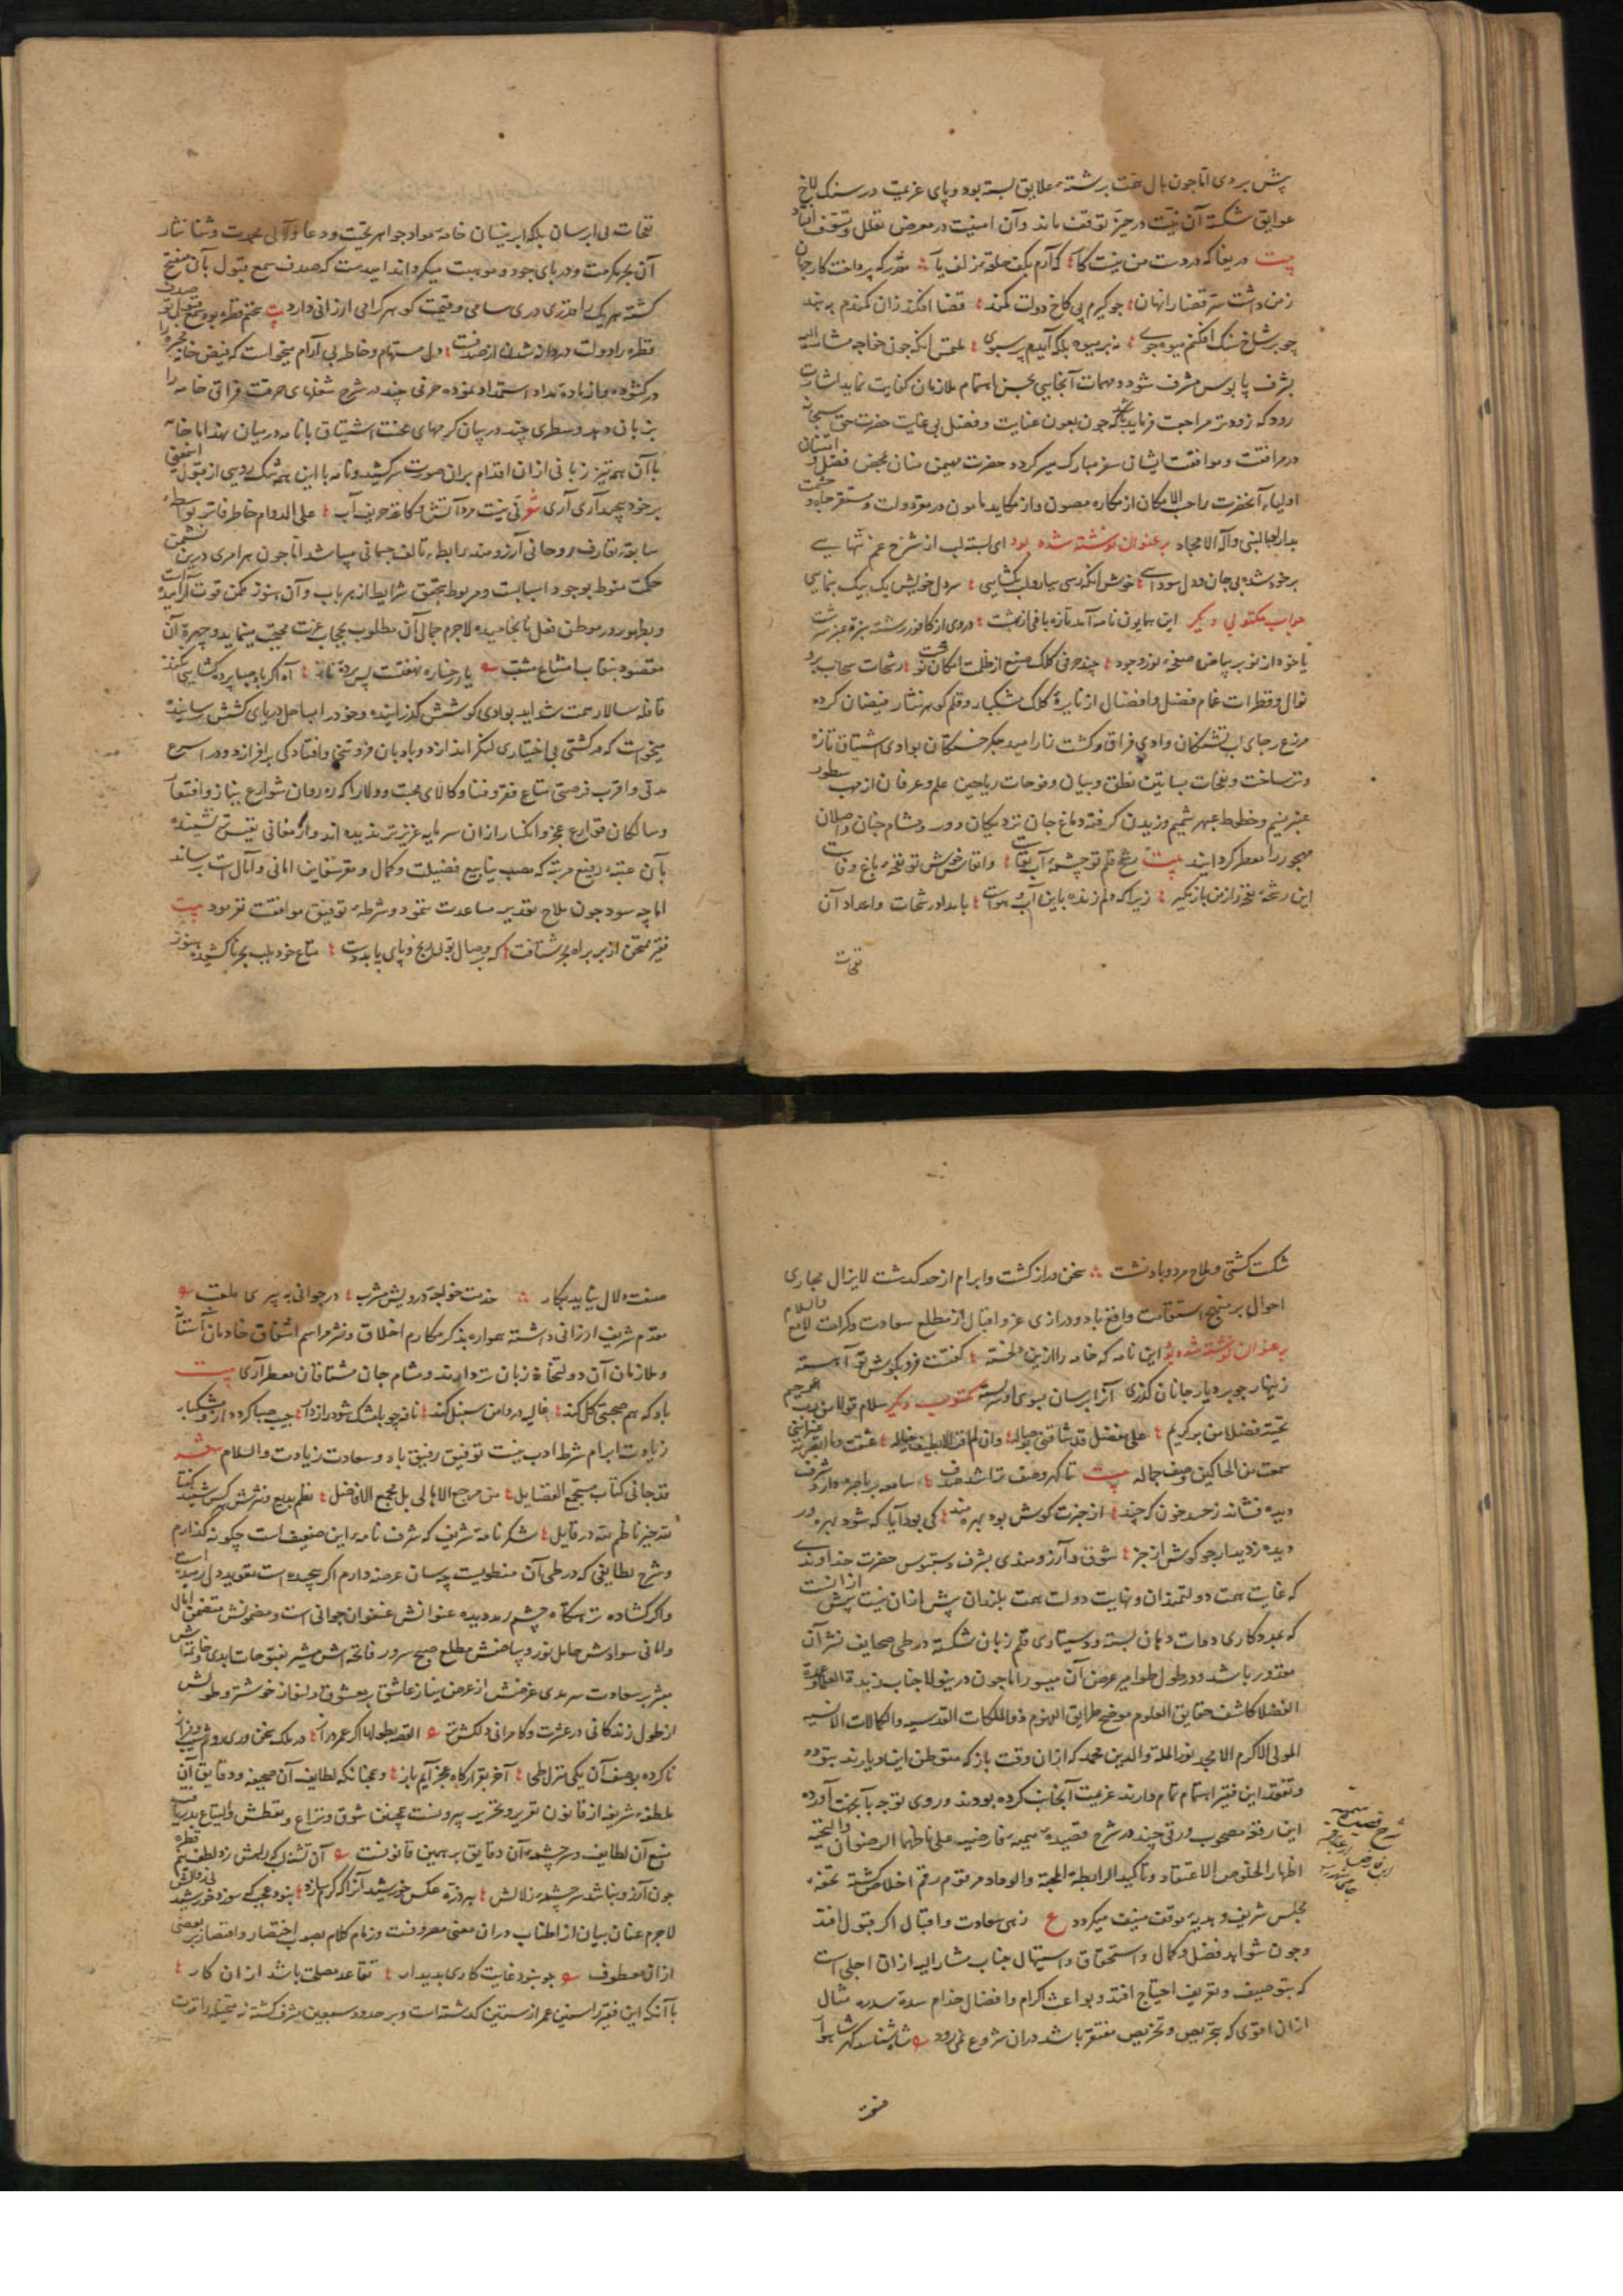 پیش بردی اما چون بال همت برشتهٔ علایق بسته بود و پای عزیمت در سنک لاخ
عوایق شکسته آن نیت در حیز توقف ماند و آن امنیت در معرض تعلل و تسوف افتاد
بیت دریغا که در دست من نیست کار که آرم بکف حلقهٔ زلف یار مقدر که پرداخت کار جهان
زمن داشت سر قضا را نهان چو کیرم پی کاخ دولت کمند قضا افکند زان کمندم به بند
چو بر شاخ سنک افکنم میوه جوی نه بر میوه بلکه آیدم بر سبوی ملتمس انکه چون خواجه مشار الیه
بشرف پابوس مشرف شود و مهمات آنجایی بحسن اهتمام ملازمان کفایت نماید اشارت
رود که زودتر مراجعت فرماید باشد که چون بعون عنایت و فضل بی غایت حضرت حق سبحانه
در مرافقت و موافقت ایشان سفر مبارک میسر کردد حضرت مهیمن منان بمحض فضل و امتنان
اولیاء آنحضرت را حسب الامکان از مکاره مصون و از مکاید مامون در مقر دولت و مستقر جاه و حشمت
بدارد بالنبی و آله الامجاد بر عنوان نوشته شده بود ای بسته لب از شرح غم تنهایی
بر خود شده بی جان و دل سودایی خوش آنکه رسی بیار و لب بکشایی سر دل خویش یک بیک بنمایی
جواب مکتوبی دیکر این همایون نامه آمد تازه باغی از بهشت در وی از کافور رسته سبزهٔ عنبر سرشت
یا خود از نو بر بیاض صفحهٔ نوز وجود چند حرفی کلک صنع از ظلمت امکان نوشت رشحات سحاب بر و
نوال و قطرات غمام فضل و افضال از نایرهٔ کلک مشکبار و قلم کوهر نثار فیضان کرده
مزرع رجای لب تشنکان وادی فراق و کشت زار امید جکر خستکان بوادی اشتیاق تازه
و تر ساخت و نفحات بساتین نطق و بیان و فوحات ریاحین علم و عرفان از مهب سطور
عنبر نسیم و خطوط عبهر شمیم وزیدن کرفته دماغ جان نزدیکان دور و مشام جنان واصلان
مهجور را معطر کردانید بیت رشح قلم تو چشمهٔ آب بقاست و انفاس خوش تو نفحهٔ باغ وفاست
این رشحه و نفحه را ز من باز مکیر زیرا که دلم زنده باین آب و هواست بامداد رشحات و اعداد آن
نفحات
نفحات بی ابر سان بلکه ابر نیسان خامه مواد جواهر تحیت و دعا و لآلی محمدت و ثنا نثار
آن بحر مکرمت و دریای جود و موهبت میکرداند امیدست که صدف سمع قبول بآن مفتح
کشته هر یک را بقدر دری سامی و قیمت کوهر کرامی ارزانی دارد
قطره را دولت دردانه شدن از صدفست دل مستهام و خاطر بی آرام میخواست که فیض خانه محبره را
در کشوده و از یاوری مداد استمداد نموده حرفی چند در شرح شعلهای حرقت فراق خامه را
بر زبان دهد و سطری چند در بیان کرمهای محنت اشتیاق با نامه در میان نهد اما خامه
با آن همه تیز زبانی از ان اقدام بر ان صورت سر کشید و نامه با این همه تنک رویی از قبول این معنی
بر خود پیچید آری آری شعر نی نیست مرد آتش و کاغذ حریف آب علی الدوام خاطر فاتر بواسطهٔ
سابقهٔ تعارف روحانی آرزومند رابطهٔ تالف جسمانی میباشد اما چون هر امری درین نشئه
حکمت منوط بوجود اسبابست و مربوط بتحقق شرایط از هر باب و آن هنوز از ممکن قوت برآمده
و بظهور در موطن فعل نانجامیده لاجرم جمال آن مطلوب بحجاب عزت محتجب مینماید و چهرهٔ آن
مقصود بنقاب امتناع منتقب یار رخساره نهفتست پس پردهٔ ناز آه اکر باد صبا پرده کشایی نکند
قافله سالار همت شداید بوادی کوشش کذرانیده و خود را بساحل دریای کشش رسانیده
میخواست که در کشتی بی اختیاری لنکر اندازد و بادبان فروتنی و افتادکی بر افرازد و در اسرع
مدتی و اقرب فرصتی متاع فقر و فنا و کالای محبت و ولا را که ره روان شوارع نیاز و افتقار
و سالکان قوارع عجز و انکسار از ان سرمایهٔ عزیزتر ندیده اند و ارمغانی نفیس تر نشنیده
بآن عتبهٔ رفیع مرتبه که مصب ینابیع فضیلت و کمال و مقر سفاین امانی و آمال است برساند
اما چه سود چون ملاح تقدیر مساعدت ننمود و شرطهٔ توفیق موافقت نفرمود بیت
فقیر ممتحن از بر براه بحر شتافت که وصال تو بی رنج و پای یا بدست متاع خود بلب بحر ناکشیده هنوز
شکست کشتی و ملاح مرد و باد نشست سخن دراز کشت و ابرام از حد کذشت لا یزال مجاری
احوال بر منهج استقامت واقع باد و درازی عز و اقبال از مطلع سعادت و کرامت لامع والسلام
بر عنوان نوشته شده بود این نامه که خامه را ازین دلخسته کفتست فرو بکوش تو آهسته
زینهار چو بر دیار جانان کذری آنرا برسان بسوی او سربسته مکتوب دیکر سلام قولا من رب رحیم
تحیة فضلا من بر کریم علی فضل قد شاقنی وصاله وان لم الف الا بطیف خیاله عشقت وما ابصرته غیر اننی
سمعت من الحاکین وصف جماله بیت تا کهر وصف تو شد صدف سامعه بر باصره دارد شرف
دیده فشاند ز حسد خون که چند از خبرت کوش بود بهره مند کی بود آیا که شود بهره ور
دیده ز دیدار چو کوش از خبر شوق و آرزومندی بشرف دستبوس حضرت خداوندی
که غایت همت دولتمندان و نهایت دولت همت بلندان پیش ازان نیست بیش ازانست
که بمددکاری دوات دهان بسته و دستیاری قلم زبان شکسته در طی صحایف نشر آن
مقدور باشد و در طول طوامیر عرض آن میسور اما چون درینولا جناب زبدة العلما و عمدة
الفضلا کاشف حقایق العلوم موضح طرایق الفهوم ذو الملکات القدسیه والکمالات الانسیه
المولی الاکرم الامجد نور الملة والدین محمد که ازان وقت باز که متوطن این دیارند بتودد
و تفقد این فقیر اهتمام تمام دارند عزیمت آنجناب کرده بودند و روی توجه بآنجانب آورده
این رقعه مصحوب ورقی چند در شرح قصیدهٔ میمیهٔ فارضیه علی ناظمها الرضوان والتحیه
اظهار الخلوص الاعتقاد و تاکید الرابطة المحبة والوداد مرقوم رقم اخلاص کشته تحفهٔ
مجلس شریف و هدیهٔ موقف منیف میکردد ع زهی سعادت و اقبال اکر قبول افتد
و چون شواهد فضل و کمال و استحقاق و استیهال جناب مشار الیه ازان اجلی است
که بتوصیف و تعریف احتیاج افتد و بواعث اکرام و افضال خدام سدهٔ سدره مثال
ازان اقوی که بتحریص و تحریض مفتقر باشد دران شروع نمی رود شاه شناسد کهر شاهوار
صنعت
صنعت دلال نیاید بکار خدمت خواجه درویش مشرب در جوانی به پیری ملقب
مقدم شریف ارزانی داشته همواره بذکر مکارم اخلاق و نشر مراسم اشفاق خادمان آستان
و ملازمان آن دولتخانه زبان تر دارند و مشام جان مشتاقان معطر آری بیت
باد که هم صحبتی کل کند غالیه در دامن سنبل کند نافه چو با مشک شود راز دار جیب صبا کردد ازو مشکبار
زیادت ابرام شرط ادب نیست توفیق رفیق باد و سعادت زیادت والسلام شعر
قد جانی کتاب مستجمع الفضایل من مرجع الاهالی بل مجمع الافاضل نظم بدیع و نثرش هر کس شنید کفتا
لله خیر ناظم لله در قایل شکر نامهٔ شریف که شرف نامهٔ این ضعیف است چکونه کذارم
و شرح لطایفی که در طی آن منطویست چسان عرضه دارم اکر پیچیده است تعویذ دل رمیده است
و اکر کشاده نزهتکاه چشم رمد دیده عنوانش عنفوان جوانی است و مضمونش متضمن آمال
و امانی سوادش حامل نور و بیاضش مطلع صبح سرور فاتحه اش مشیر بفتوحات ابدی خاتمه اش
مبشر بسعادت سرمدی عرضش از عرض نیاز عاشق بر معشوق دلنواز خوشتر و طولش
از طول زندکانی در عشرت و کامرانی دلکش تر القصه بطولها اکر عمر دراز در ملک سخنوری روم شیب و فراز
ناکرده بوصف آن یکی منزل طی آخر بقرارکاه عجز آیم باز و همچنانکه لطایف آن صحیفه و دقایق آن
ملطفهٔ شریفه از قانون تقریر و تحریر بیرونست همچنین شوق و نزاع و تعطش و التیاع بدریافت
منبع آن لطایف و سرچشمهٔ آن دقایق بر همین قانونست آن تشنه لب که بر لبش زد لطف نمی قطره
چون آرزو نباشد سرچشمهٔ زلالش هر ذره عکس خورشید آنرا که کرم سازد نبود عجب که سوزد خورشید
لاجرم عنان بیان از اطناب دران معنی مصروفست و زمام کلام بصوب اختصار و اقتصار بر بعضی
ازان معطوف چو نبود غایت کاری پدیدار تقاعد مصلحت باشد ازان کار
با آنکه این فقیر را سنین عمر از ستین کذشته است و بر حدود سبعین مشرف کشته نه متخیله را قوت